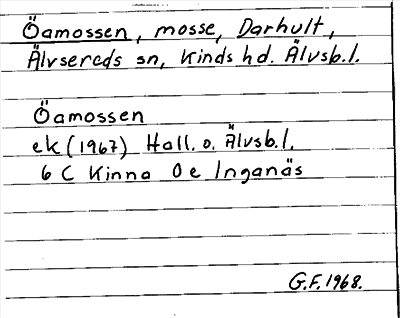 Öamossen, mosse, Darhult,
Älvsereds sn, Kinds hd. Älvsb.l.
Öamossen
ek (1967) Hall. o. Älvsb.l.
6 C Kinna 0 e Inganäs
G.F. 1968.